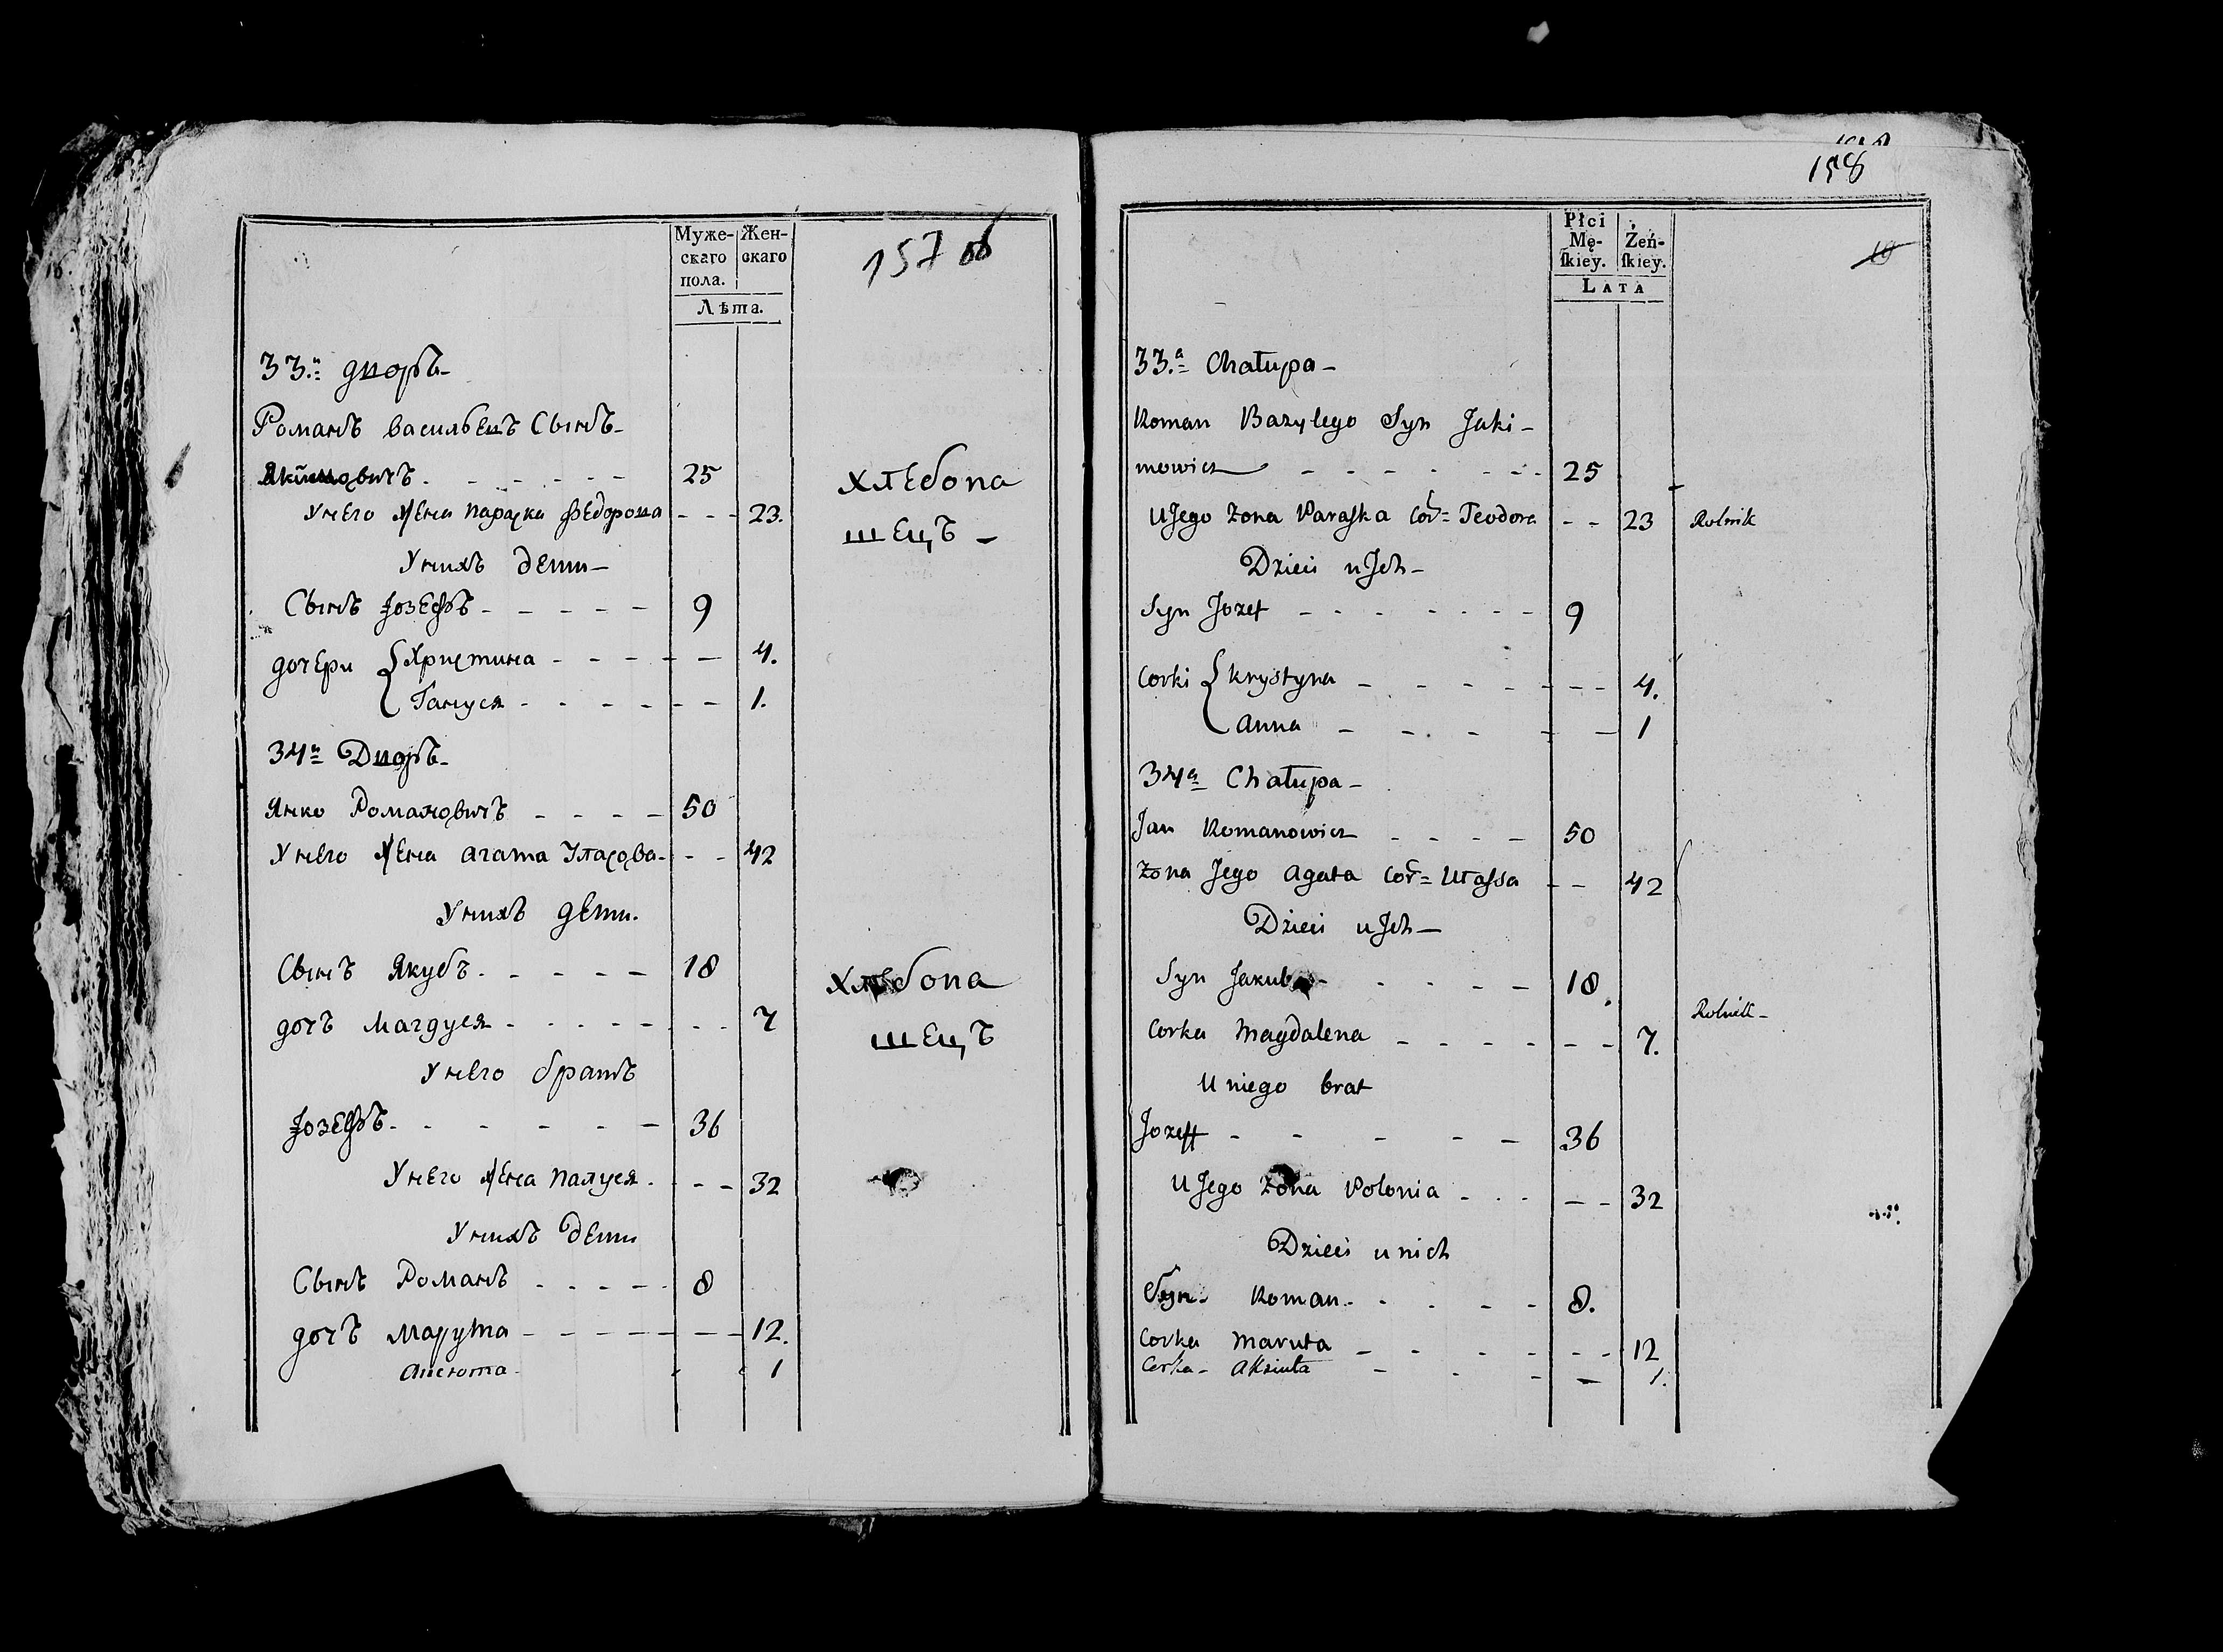 Муже-
скаго
пола.
Жен-
скаго
Лѣта.
157 об
33.й дворъ-
Романъ васильевъ Сынъ-
Якимовичъ - - - - - - 25
У него жена параска федорова - - - 23.
У нихъ дети-
Сынъ Jозефъ - - - - - 9
дочери { Христина - - - - - 4.
Гануся - - - - - - - 1.
хлебопа
шецъ -
34й Дворъ-
Янко Романовичъ - - - - 50
У него жена агата Уласова - - - 42
У нихъ дети.
Сынъ Якубъ - - - - - 18
дочъ Магдуся - - - - - - - 7
У него братъ
Jозефъ - - - - - - 36
У него жена палуся - - - 32
У нихъ дети
Сынъ Романъ - - - - - 8
дочъ Марута - - - - - - - 12.
- - 1
хлебопа
шецъ
158
Płci
Mę-
ſkiey.
Żeń-
ſkiey.
LATA
19
33.a Chałupa -
Roman Bazylego Syn Jaki-
mowicz - - - - - - - 25
U Jego Zona Paraſka Cor= Teodora - - 23 Rolnik
Dzieci u Jch -
Syn Jozef - - - - - - - 9
Corki { Krystyna - - - - - - - - 4.
Anna - - - - - - 1
34a Chałupa -
Jan Romanowicz - - - - 50
Zona Jego Agata Cor= Ułaſsa - - 42
Dzieci u Jch -
Syn Jakub - - - - - 18.
Rolnik -
Corka Magdalena - - - - - - - 7.
U niego brat
Jozeff - - - - - 36
U Jego Zona Polonia - - - - - 32
Dzieci u nich
Syn - Roman - - - - - 8.
Corka Maruta - - - - - - - 12
Corka - Aksiuta - - - - 1.